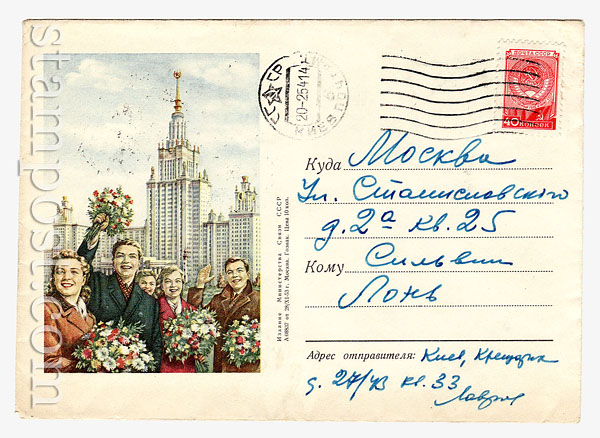 stampost.com
ПОЧТА СССР
40 КОПЕЕК
СССР
20-2 54 14
КИЕВ
Куда Москва
Ул. Станиславского
д. 2а кв. 25
Кому Сильвии
Лонь
Адрес отправителя: Киев, Крещатик
д. 27/43 кв. 33
Издание Министерства Связи СССР
А 08837 от 28/XI-53 г. Москва. Гознак. Цена 10 коп.